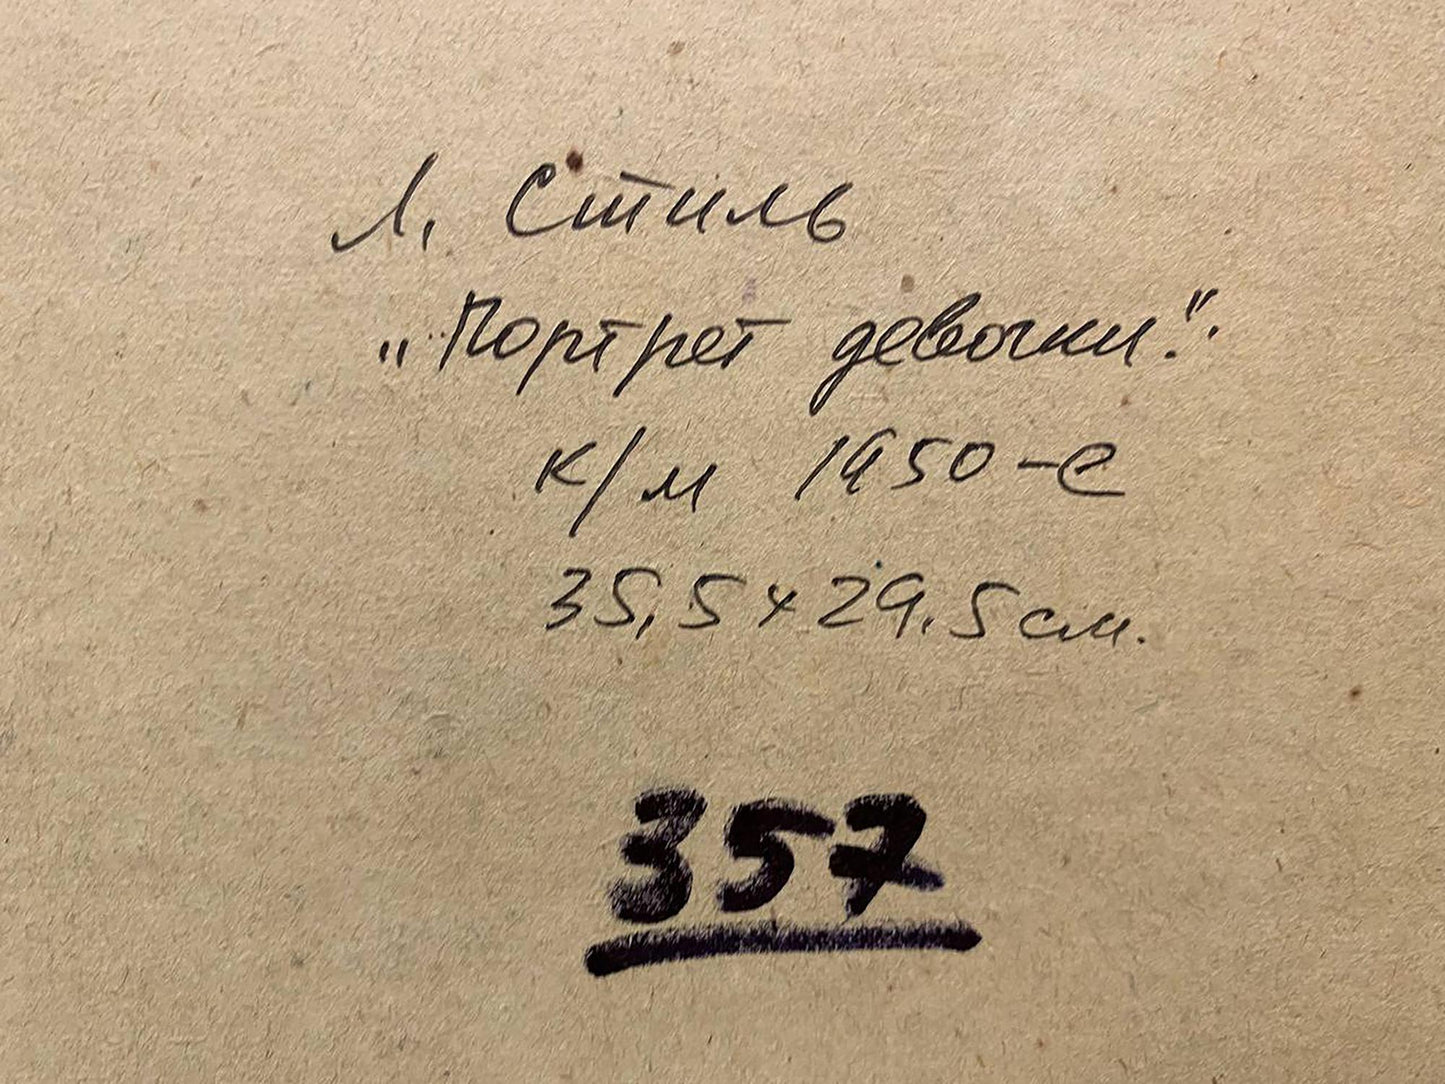 Л. Стиль
„Портрет девочки."
к/м 1950-е
35,5×29,5 см.
357